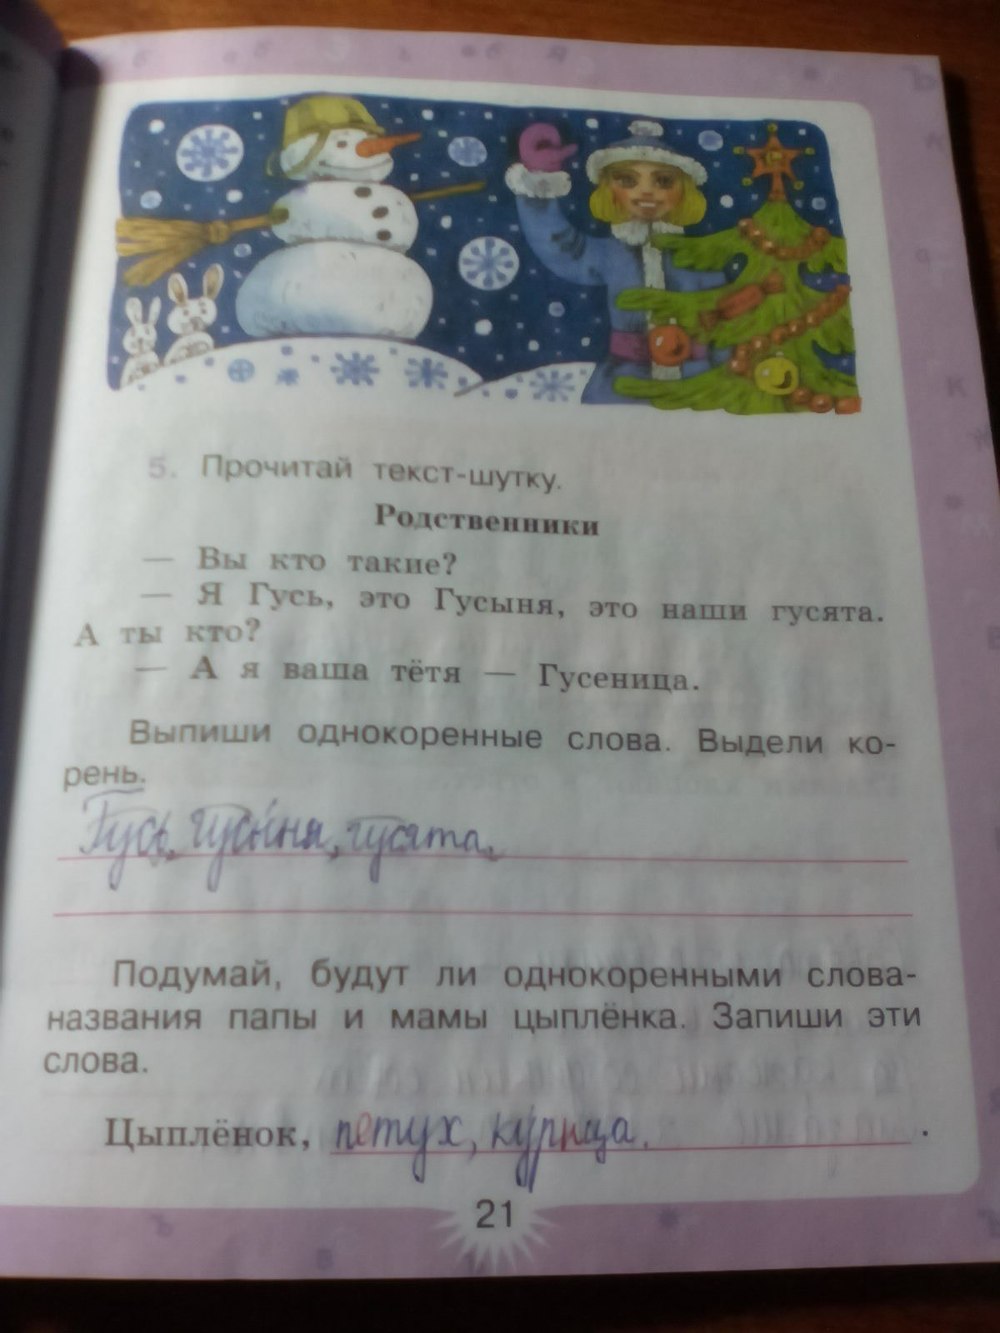 5. Прочитай текст-шутку.
Родственники
— Вы кто такие?
— Я Гусь, это Гусыня, это наши гусята.
А ты кто?
— А я ваша тётя — Гусеница.
Выпиши однокоренные слова. Выдели ко-
рень.
Гусь, гусыня, гусята.
Подумай, будут ли однокоренными слова-
названия папы и мамы цыплёнка. Запиши эти
слова.
Цыплёнок, петух, курица. .
21